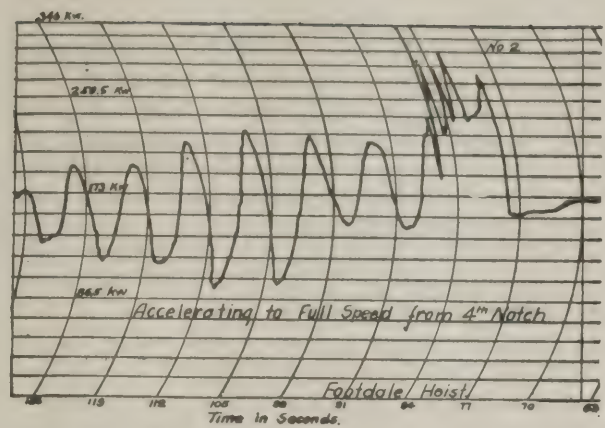 346 Kw.
No 2
259.5 Kw
173 Kw
86.5 KW
Accelerating to Full Speed from 4th Notch
Footdale Hoist.
119 112 105 98 91 84 77 70 63
Time in Seconds.